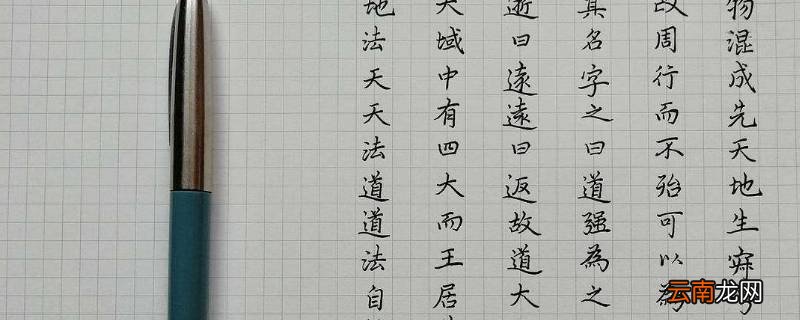 物混成先天地生寂
改周行而不殆可以為
其名字之曰道强為之
逝曰遠遠曰返故道大
大域中有四大而王居
地法天天法道道法自
云南龙网